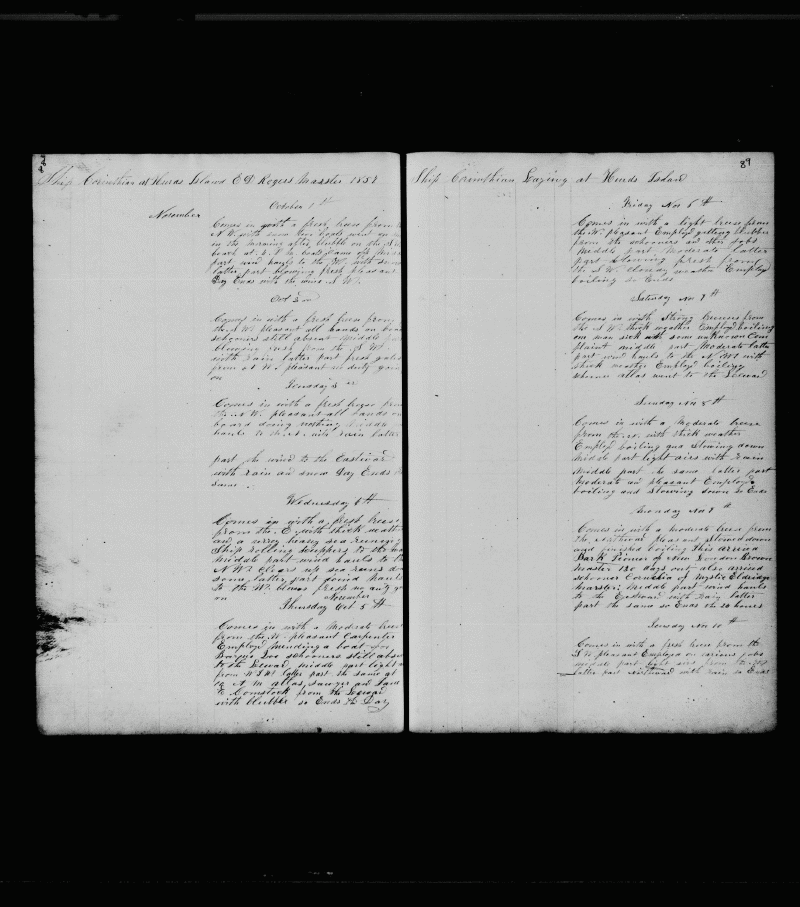 Ship Corinthian at Hurds Island E D Rogers Master 1857
October 1st
November
Comes in with a fresh breeze from
N W. with snow two boats went on
in the morning after blubber on the
beach at 6 P M boats came off middle
part wind hauls to the W. with snow
latter part blowing fresh pleasant
Day Ends with the wind S W.
Oct 2n
Comes in with a fresh breeze from
the S W. pleasant all hands on board
schooners still absent middle
blowing fresh from the S W
with rain latter part fresh gales
from S W. pleasant no duty going
on
Tuesday 3
Comes in with a fresh breeze from
the N W. pleasant all hands on
board doing nothing middle
hauls to the N. with rain latter
part the wind to the Eastward
with rain an snow Day Ends
same
Wednesday 4th
Comes in with a fresh breeze
from the E. with thick weath
an a verry heavy sea running
Ship rolling scuppers to the
middle part wind hauls to the
N W. clears up sea runs down
some, latter part wind hauls
to the W. blows fresh no duty
on
November
Thursday Oct 5th
Comes in with a Moderate breeze
from the W. pleasant Carpenter
Employ mending a boat for
schooners still absent
to the Leward middle part light
from W S W latter part the same at
10 A M atlas, sawyer an
E Comstock from the Leward
with blubber so Ends the Day
89
Ship Corinthian Laying at Hurds Island
Friday Nov 6th
Comes in with a light breeze from
the W. pleasant Employ getting blubber
from the schooners an other jobs
middle part Moderate latter
part blowing fresh from
the S W. cloudy weather Employ
boiling so Ends
Saturday Nov 7th
Comes in with strong breezes from
the S W. thick weather Employ boiling
one man sick with some unKnown Com
plaint middle part Moderate latter
part wind hauls to the N W with
thick weather Employ boiling
schooner atlas went to the Leeward
Sunday Nov 8th
Comes in with a Moderate breeze
from the N. with thick weather
Employ boiling and stowing down
middle part light airs with rain
middle part the same latter part
moderate an pleasant Employ
boiling and stowing down so Ends
Monday Nov 9th
Comes in with a moderate breeze from
the Northerd pleasant stowed down
and finished boiling this arrived
Bark Pioneer of New London Brown
master 120 days out also arrived
schooner Cornelia of Mystic Eldridge
master middle part wind hauls
to the Eastward with rain latter
part the same so Ends the 24 hours
Tuesday Nov 10th
Comes in with a fresh breeze from the
S W. pleasant Employed on various jobs
middle part light airs from the
latter part Northward with rain so Ends